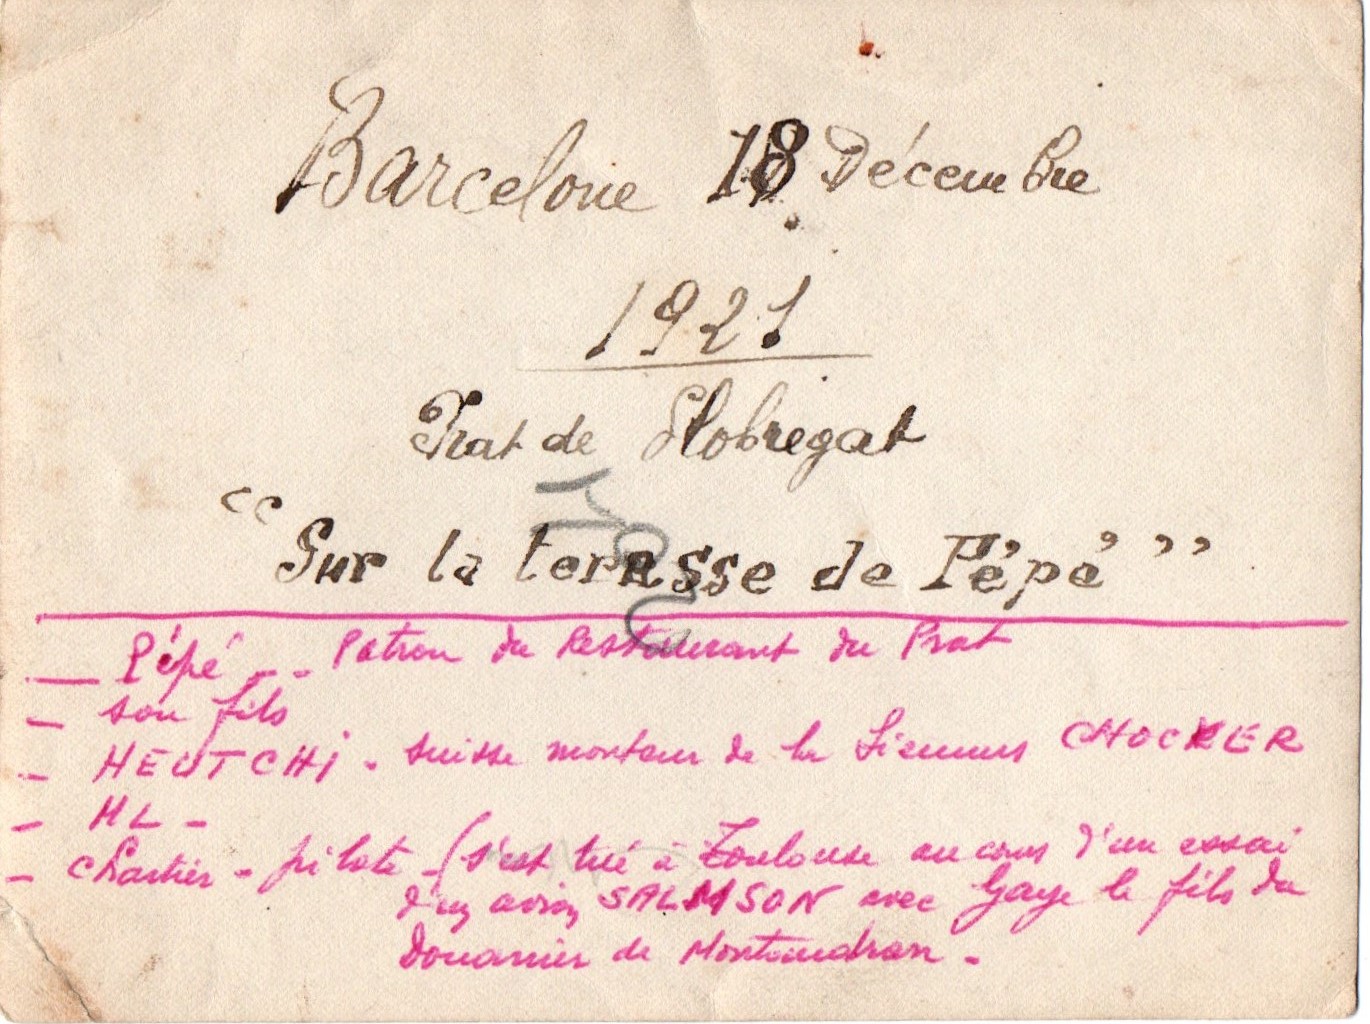 Barcelone 18 Décembre
1921
Prat de Llobregat
"Sur la terasse de Pépé"
— Pépé - - Patron du Restaurant du Prat
- son fils
- HEUTCHI - suisse monteur de la Siemens CHOCKER
- HL -
- chartier - pilote - (s'est tué à Toulouse au cours d'un essai
d'un avion SALMSON avec Gaye le fils du
Douanier de Montaudran -